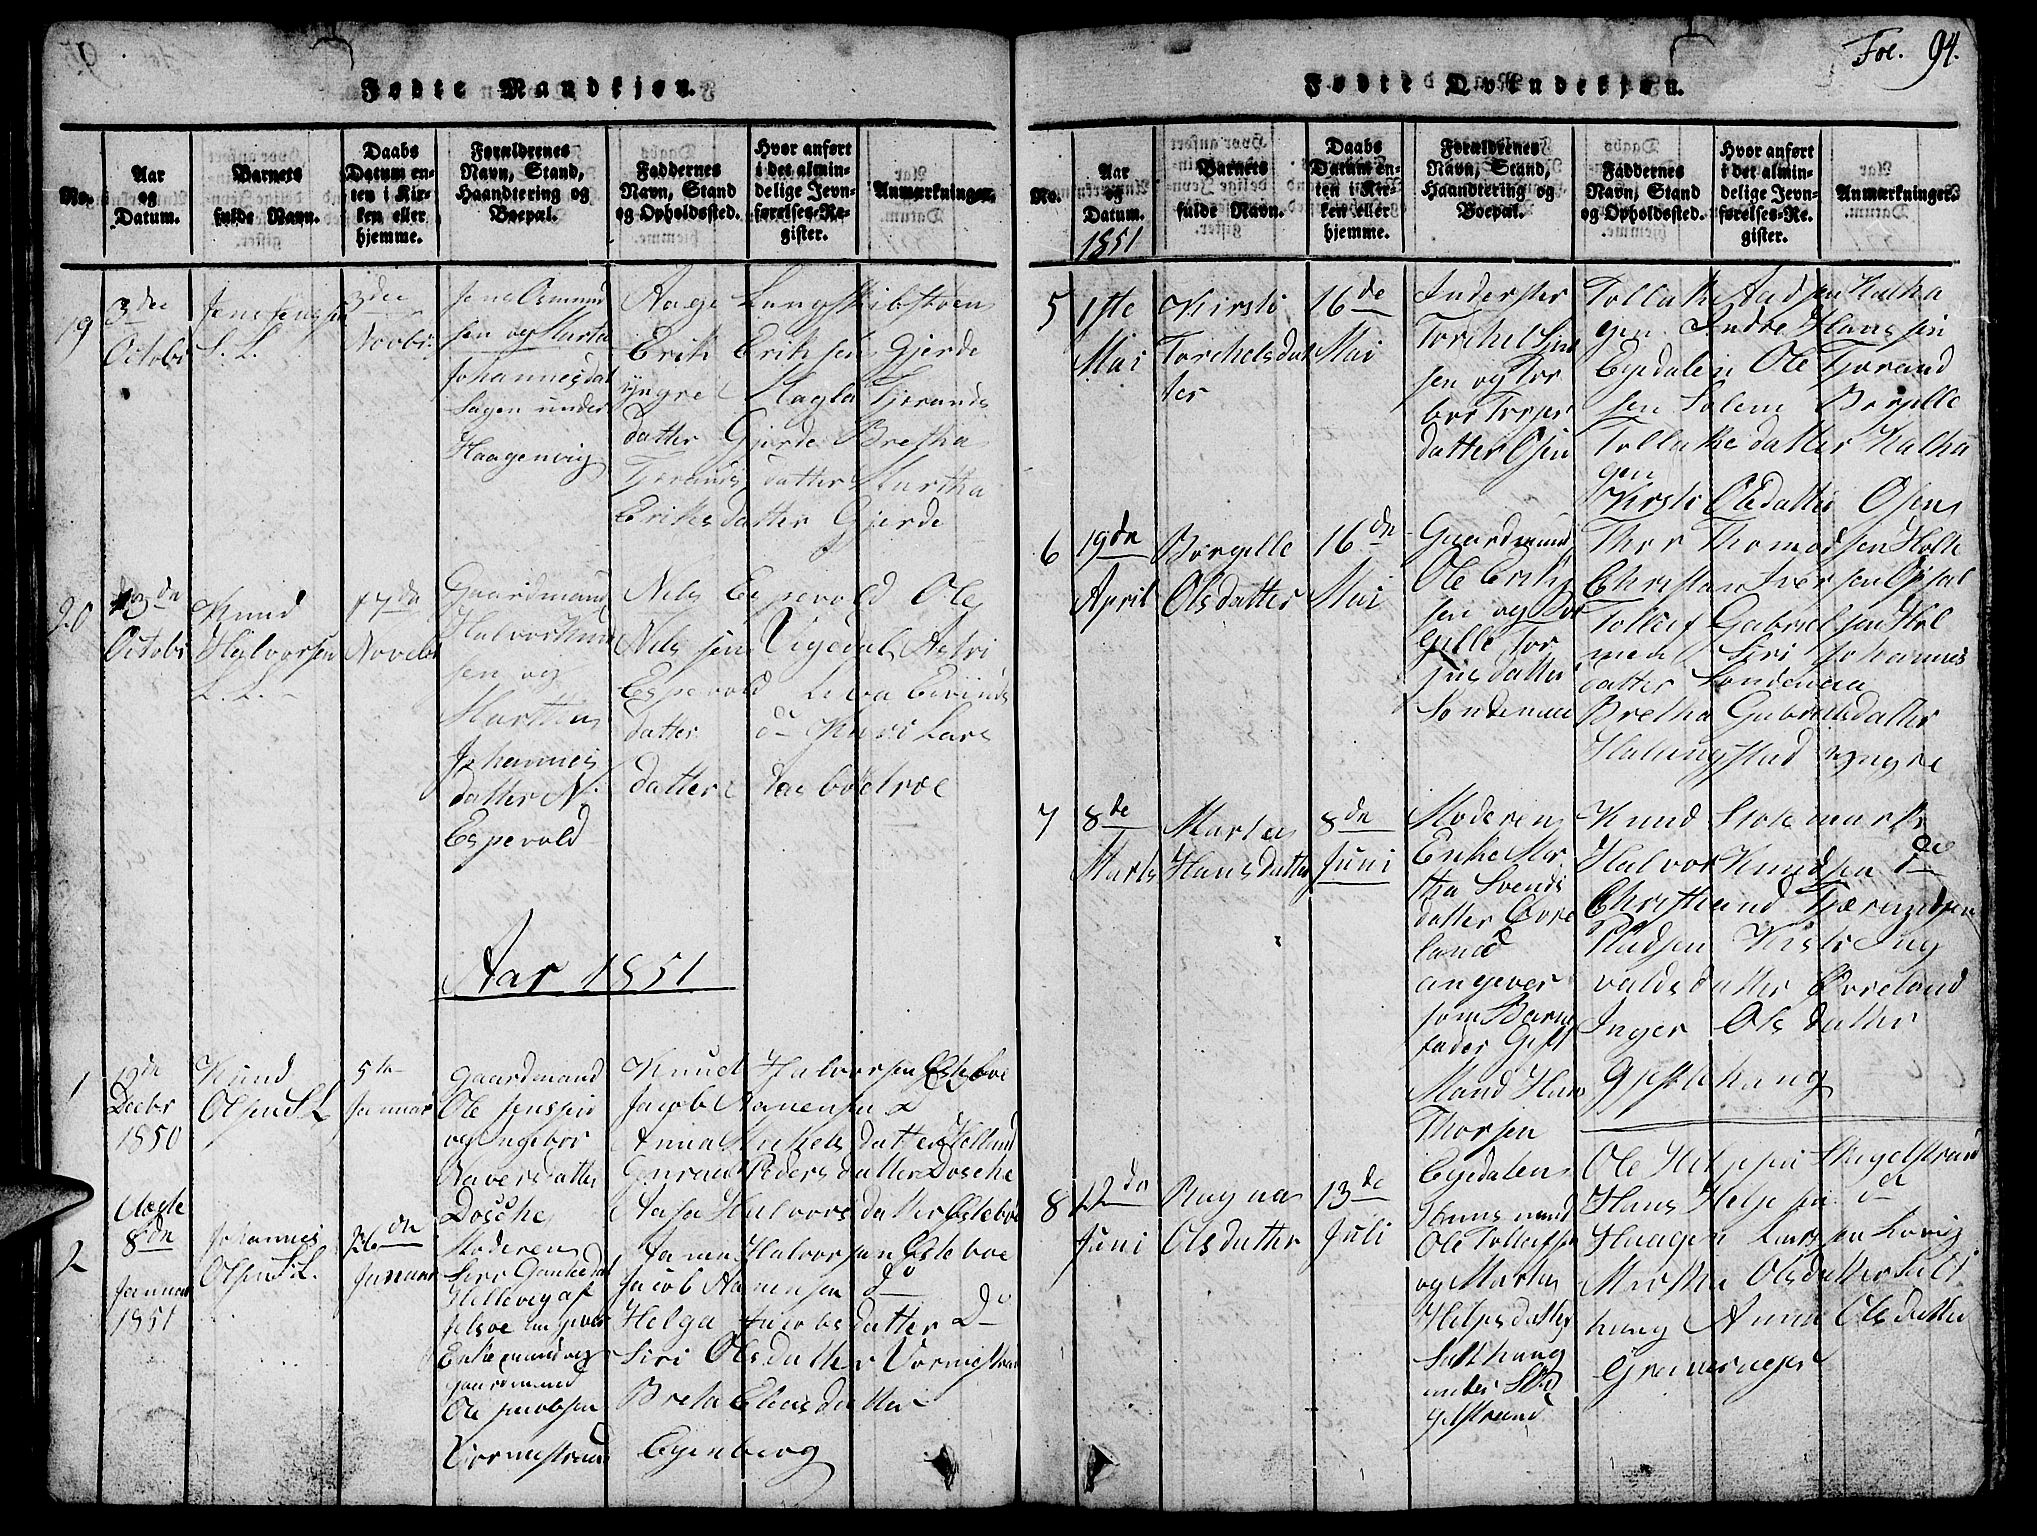 Fol. 94.
Fødte Mandkjøn.
No.
Aar og Datum.
Barnets fulde Navn.
Daabs Datum enten i Kirken eller hjemme.
Forældrenes Navn, Stand, Haandtering og Boepæl.
Faddernes Navn, Stand og Opholdssted.
Hvor anført i det almindelige Jevnførelses-Register.
Anmærkninger.
19
3die
Octobr
3die
Novbr.
Jens Asmund
sen og Marta
Johannesdat
Hagen under
Haagenvig
Aage Langskibstoen
Erik Eriksen Gjerde
yngre Magla Tjerands
datter Gjerde Bretha
Tjerands datter Martha
Eriks datter Gjerde
20
Octobr
Knud
Halvorsen
L. L.
17de
Novebr
Gaardmand
Halvor Knud
sen og
Marthe
Johannes
datter N.
Espevold
Nels Espevold Ole
Nelssen Vigedal Astri
Espevold Leva Eivinds
datter do Kari Lars
datter
Aar 1851
1
19de
Decbr
1850
Knud
Olsen L L
5te
Januar
Gaardmand
Ole Jenssen
og Ingebor
Raversdatter
Dosche
Knud Halvorsen Østeboe
Jacob Aanensen do
Anna Mikels datter
Guran Peders datter Dosche
Aasa Halvors datter Østebø
2
Uægte
8de
Januar
1851
Johannes
Olsen L L.
26de
Januar
Moderen
Siri Gundersdat
Hillevig af
Jelsoe angiver
Enkemand og
gaardmand
Ole Jacobsen
Vormestrand
Janna Halvorsen Østeboe
Jacob Aanensen Do
Helga Jacobs datter Do
Siri Ols datter Vormestran
Breta Elias datter
Egenberg
Fødte Qvindekjøn.
No.
Aar og Datum.
1851
Barnets fulde Navn.
Daabs Datum enten i Kirken eller hjemme.
Forældrenes Navn, Stand, Haandtering og Boepæl.
Faddernes Navn, Stand og Opholdssted.
Hvor anført i det almindelige Jevnførelses-Register.
Anmærkninger.
5
1ste
Mai
Kirsti
Torkelsdat
ter
16de
Mai
Inderster
Torkel
sen og Tor
bor
datter Osen
Tollak Aadsen Halha
gen Endre Hanssen
Egedalen Ole Tjerand
sen Solem Borgille
Tollakedatter Halha
gen
Kirsti Olsdatter Osen
6
19de
April
Borgille
Olsdatter
16de
Mai
Gaardmand
Ole Erik
sen og Bor
gille Tor
jus datter
Søndenaa
Thor Thomassen Holte
Christian Iversen Opsal
Tollef Gabrielsen Hol
mede Siri Johannes
datter Søndenaa
Bretha Gabrielsdatter
Hallingstad yngre
7
8de
Marts
Marta
Hansdatter
8de
Juni
Moderen
Enke Mar
tha Svends
datter Øvre
land
angiver
som Barne
fader Gift
Mand Hans
Thorsen
Egedalen
Knud Stolemark
Halvor Knudsen do
Christian Tjerandsen
Pladsen Kirsti Ing
valds datter Øvreland
Inger Ols datter
Gjestehaug
8
22de
Juni
Ragna
Olsdatter
13de
Juli
Huusmand
Ole Tollefsen
og Marta
Helgesdatter
Salthaug
under Ski
gelstrand
Ole Helgesen Skigelstrand
Hans Helgesen do
Haagen Larssen Lovig
Martha Olsdatter Salt
haug Anna Olsdatter